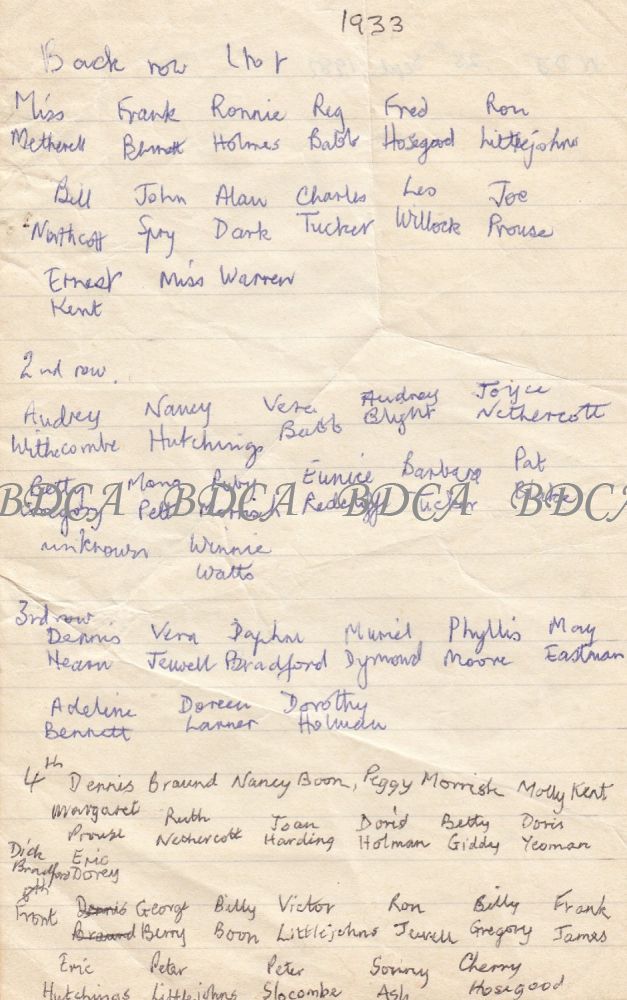 1933
Back row L to R
Miss Frank Ronnie Reg Fred Ron
Metherell Bennett Holmes Babb Hosegood Littlejohns
Bill John Alan Charles Les Joe
Northcott Spry Dark Tucker Willock Prouse
Ernest Miss Warren
Kent
2nd row.
Audrey Nancy Vera Audrey Joyce
Withecombe Hutchings Babb Blight Nethercott
Betty Mona Ruby Eunice Barbara Pat
Gregory Pett Morrish Tucker
BDCA BDCA BDCA BDCA
unknown Winnie
Watts
3rd row
Dennis Vera Daphne Muriel Phyllis May
Hearn Jewell Bradford Dymond Moore Eastman
Adeline Doreen Dorothy
Bennett Lanner Holman
4th Dennis Braund Nancy Boon, Peggy Morrish Molly Kent
Margaret Ruth Joan Doris Betty Doris
Prouse Nethercott Harding Holman Giddy Yeoman
Dick Eric
Bradford Dorey
Front Dennis George Billy Victor Ron Billy Frank
Braund Berry Boon Littlejohns Jewell Gregory James
Eric Peter Peter Sonny Cherry
Hutchings Littlejohns Slocombe Ash Hosegood